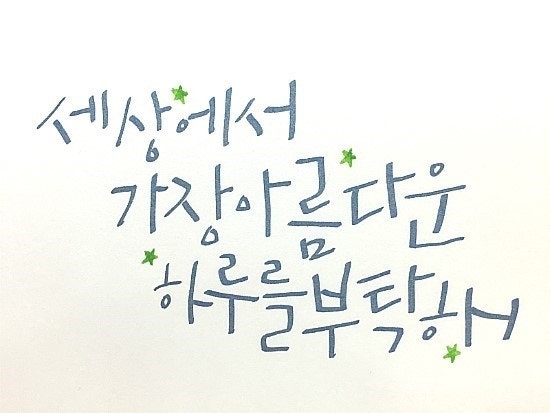 세상에서
가장아름다운
하루를부탁해